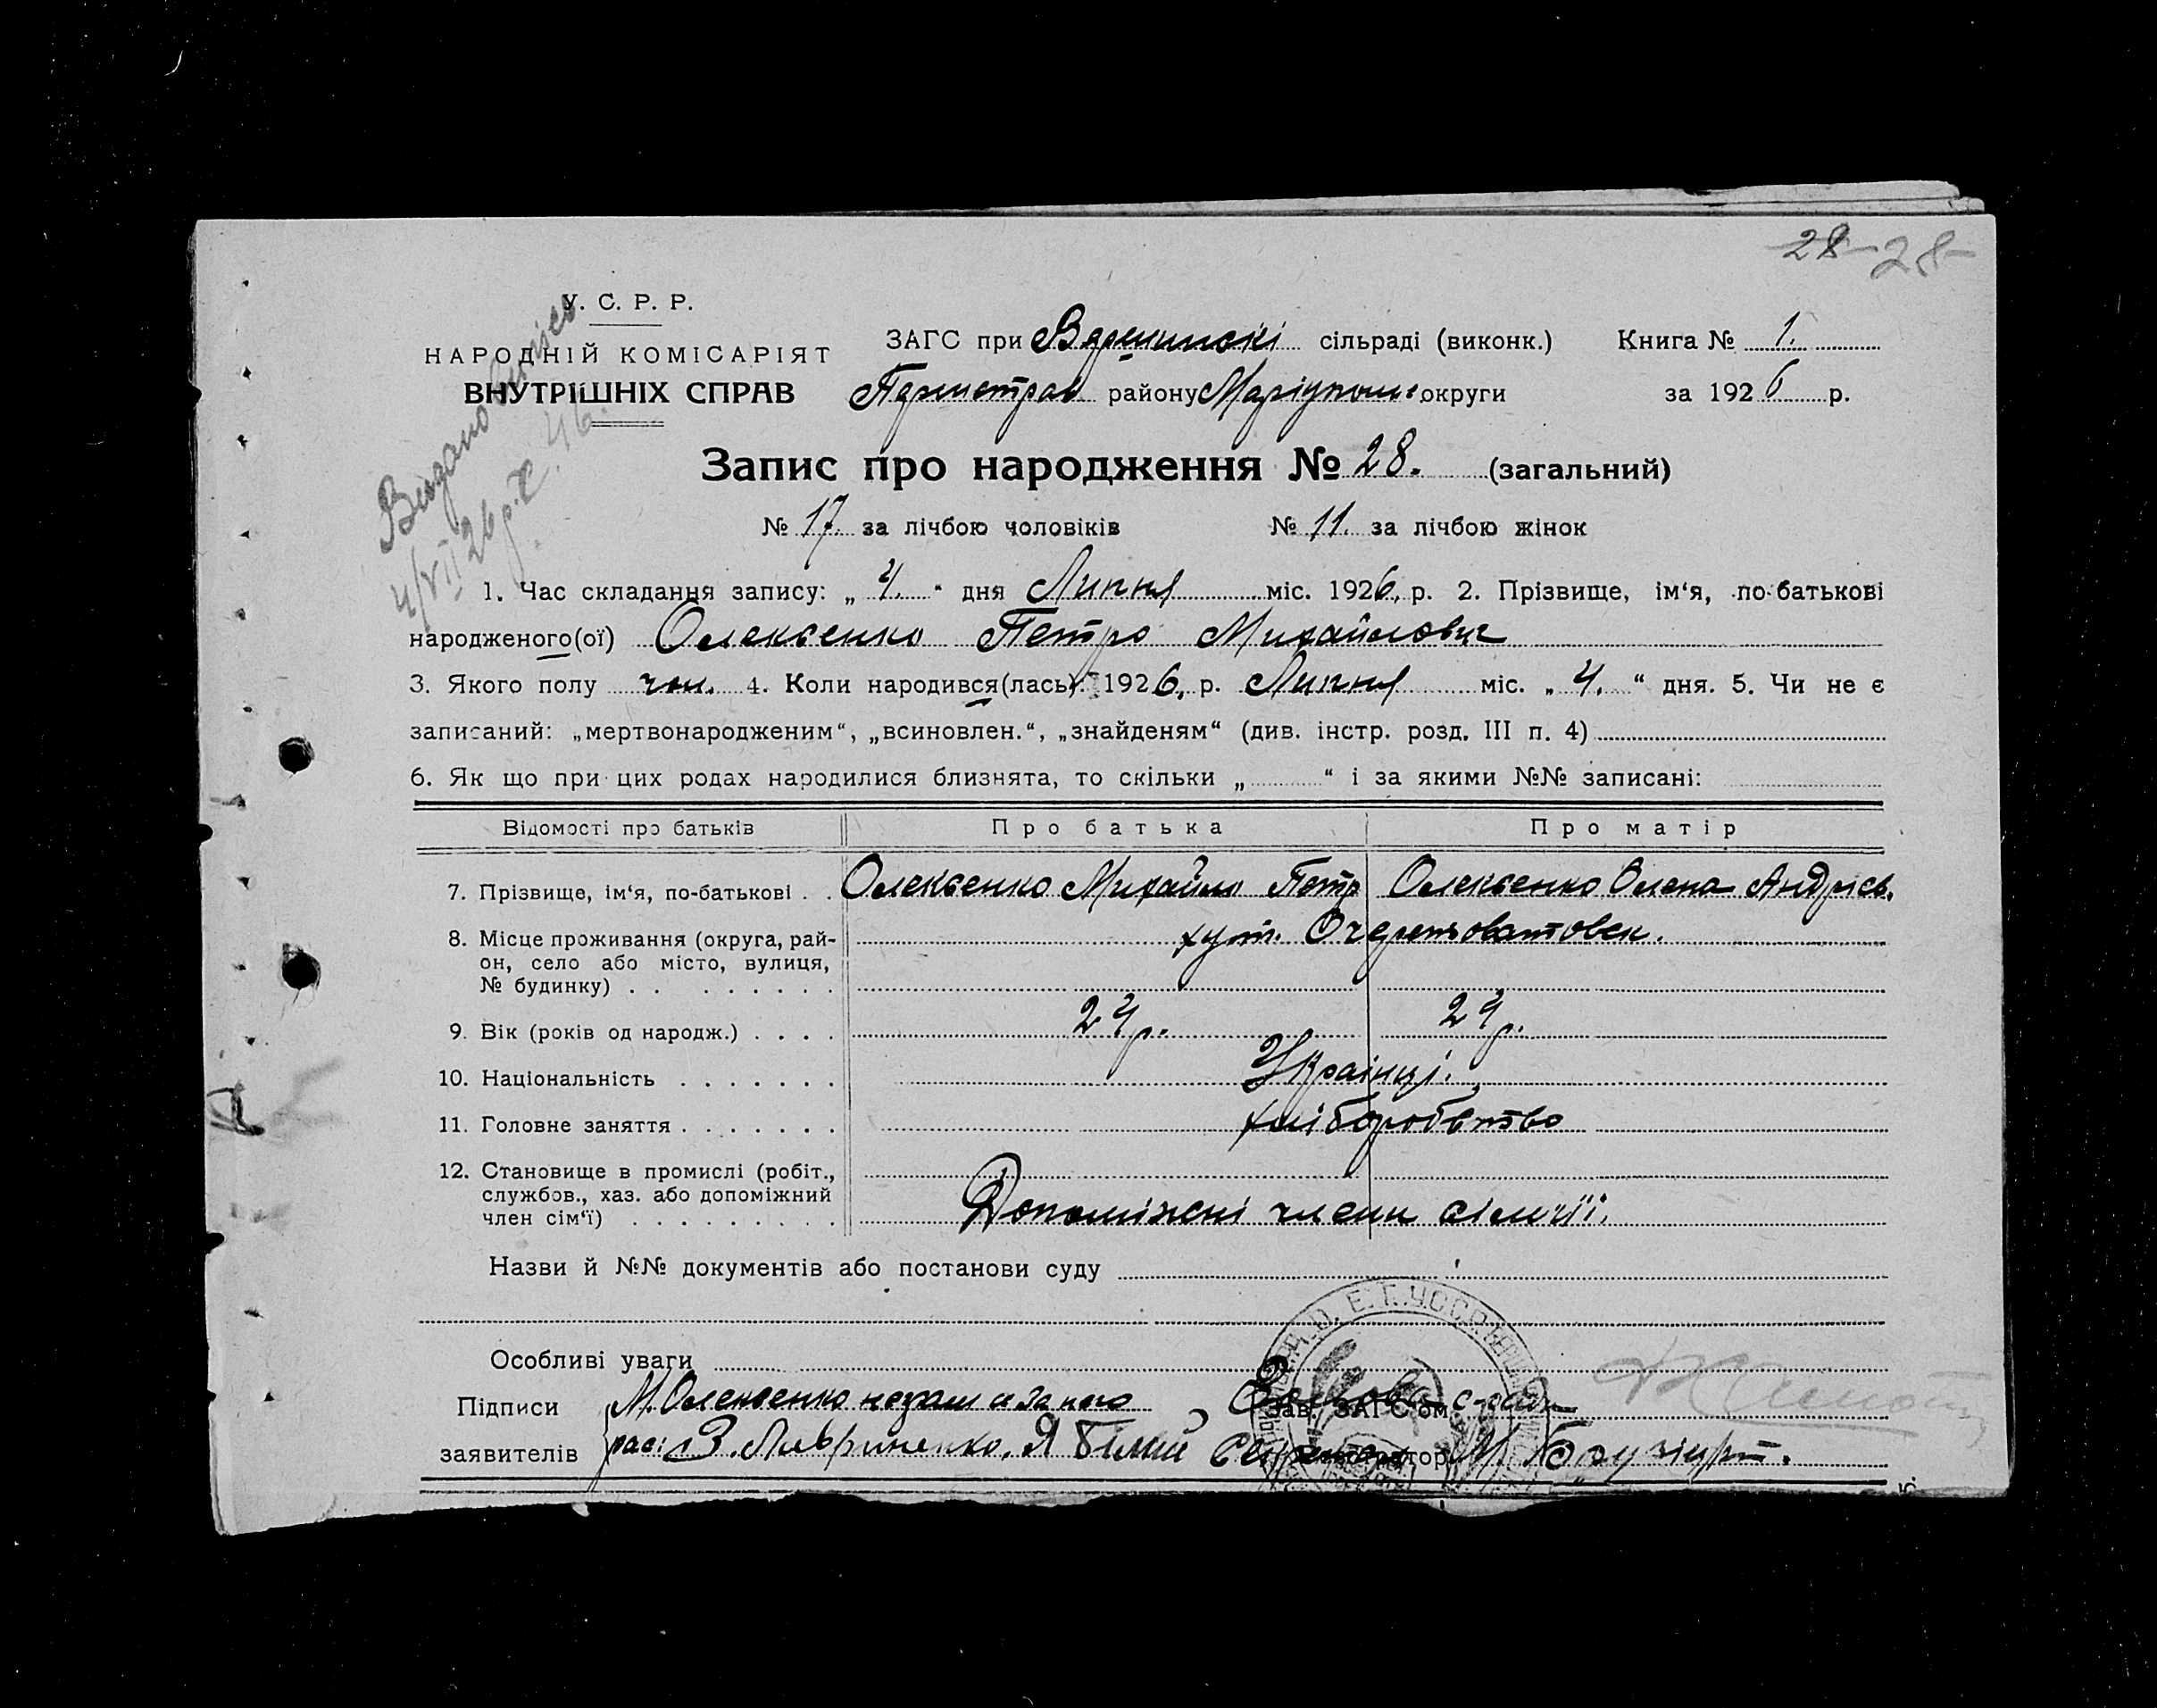 28 -28-
У. С. Р. Р.
НАРОДНІЙ КОМІСАРІЯТ
ВНУТРІШНІХ СПРАВ
Видано випис
4/VII 26 р. № 46.
ЗАГС при сільраді (виконк.) Книга № 1.
району Маріупольс округи за 1926 р.
Запис про народження № 28. (загальний)
№ 17. за лічбою чоловіків № 11. за лічбою жінок
1. Час складання запису: „ 4. “ дня Липня міс. 1926, р. 2. Прізвище, ім‘я, по-батькові
народженого(ої) Олексенко Петро Михайлович
3. Якого полу чол. 4. Коли народився(лась): 1926, р. Липня міс. „ 4. “ дня. 5. Чи не є
записаний: „мертвонародженим“, „всиновлен.“, „знайденям“ (див. інстр. розд. III п. 4)
6. Як що при цих родах народилися близнята, то скільки „ “ і за якими №№ записані:
Відомості про батьків Про батька Про матір
7. Прізвище, ім‘я, по-батькові . . Олексенко Михайло Петр Олексенко Олена Андрієв.
8. Місце проживання (округа, рай-
он, село або місто, вулиця,
№ будинку) . . . . . . . . хут. Очеретоватовск.
9. Вік (років од народж.) . . . . 24 р. 24 р.
10. Національність . . . . . . . Українці.
11. Головне заняття . . . . . . . хліборобство
12. Становище в промислі (робіт.,
службов., хаз. або допоміжний
член сім‘ї) . . . . . . . . . Допоміжні члени сімьії.
Назви й №№ документів або постанови суду
Особливі уваги
Підписи М. Олексенко неграм а за него
Зав. ЗАГС‘ом
заявителів рас: Лавриненко. Я Білий Секретар М.